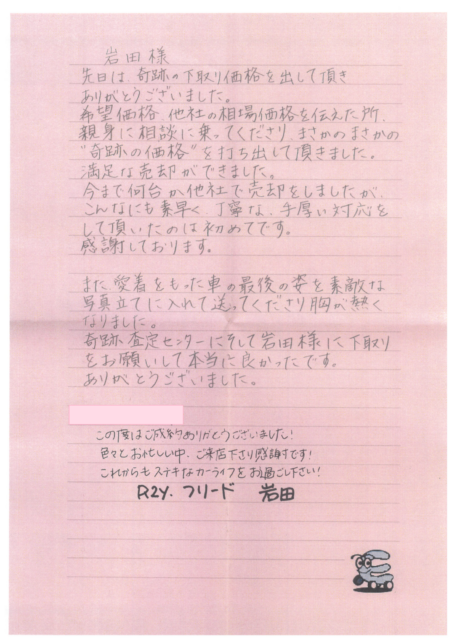 岩田様
先日は、奇跡の下取り価格を出して頂き
ありがとうございました。
希望価格、他社の相場価格を伝えた所、
親身に相談に乗ってくださり、まさかのまさかの
“奇跡の価格”を打ち出して頂きました。
満足な売却ができました。
今まで何台か他社で売却をしましたが、
こんなにも素早く、丁寧な、手厚い対応を
して頂いたのは初めてです。
感謝しております。
また、愛着をもった車の最後の姿を素敵な
写真立てに入れて送ってくださり胸が熱く
なりました。
奇跡査定センターにそして岩田様に下取り
をお願いして本当に良かったです。
ありがとうございました。
この度はご成約ありがとうございました!
色々とお忙しい中、ご来店下さり感謝です!
これからもステキなカーライフをお過ごし下さい!
R2Y. フリード 岩田